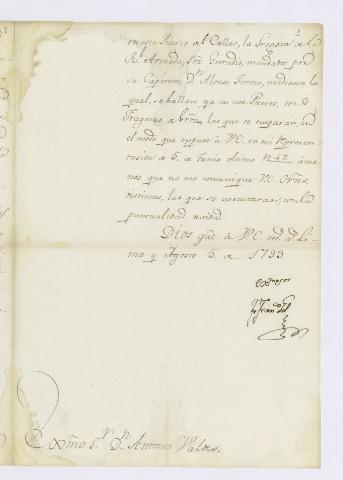 en este Puerto del Callao, la Fragata de la
Rl. Armada, Sta. Gertrudis, mandada por
su Capitan, Dn. Alonso Torres, mediante lo
qual, se hallan ya en este Puerto, tres
Fragatas de Grra, las que se ocuparan, en
el modo que expuse à VE, en mi Representacion
de 5, de Junio ultimo N. 47. à menos
que no me comunique V.E. Orns.
distintas, las que se executaran, con la
puntualidad devida.
Dios gue à VE ms. as. Lima
y Agosto 5. de 1793
Exmo Sor
Exmo. Sr. Dn. Antonio Valdes.